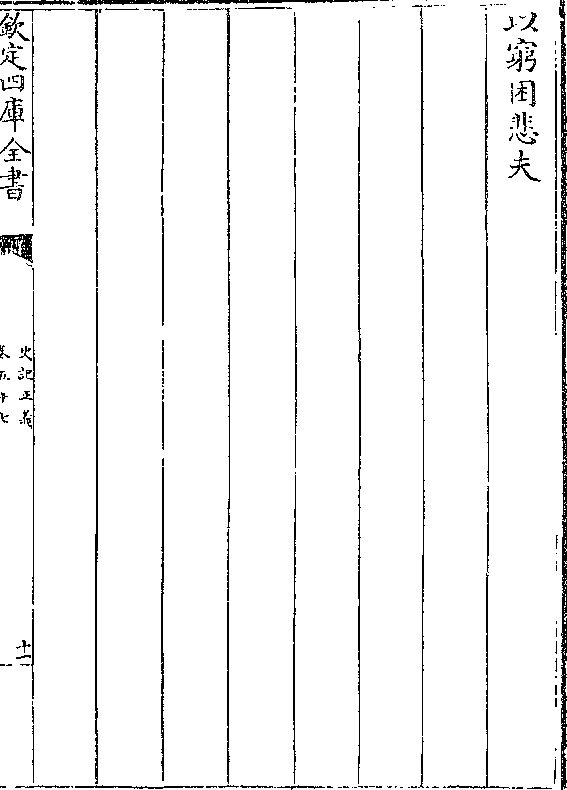 以窮困悲夫
欽定四庫全書
史記正義
卷五十七
十一